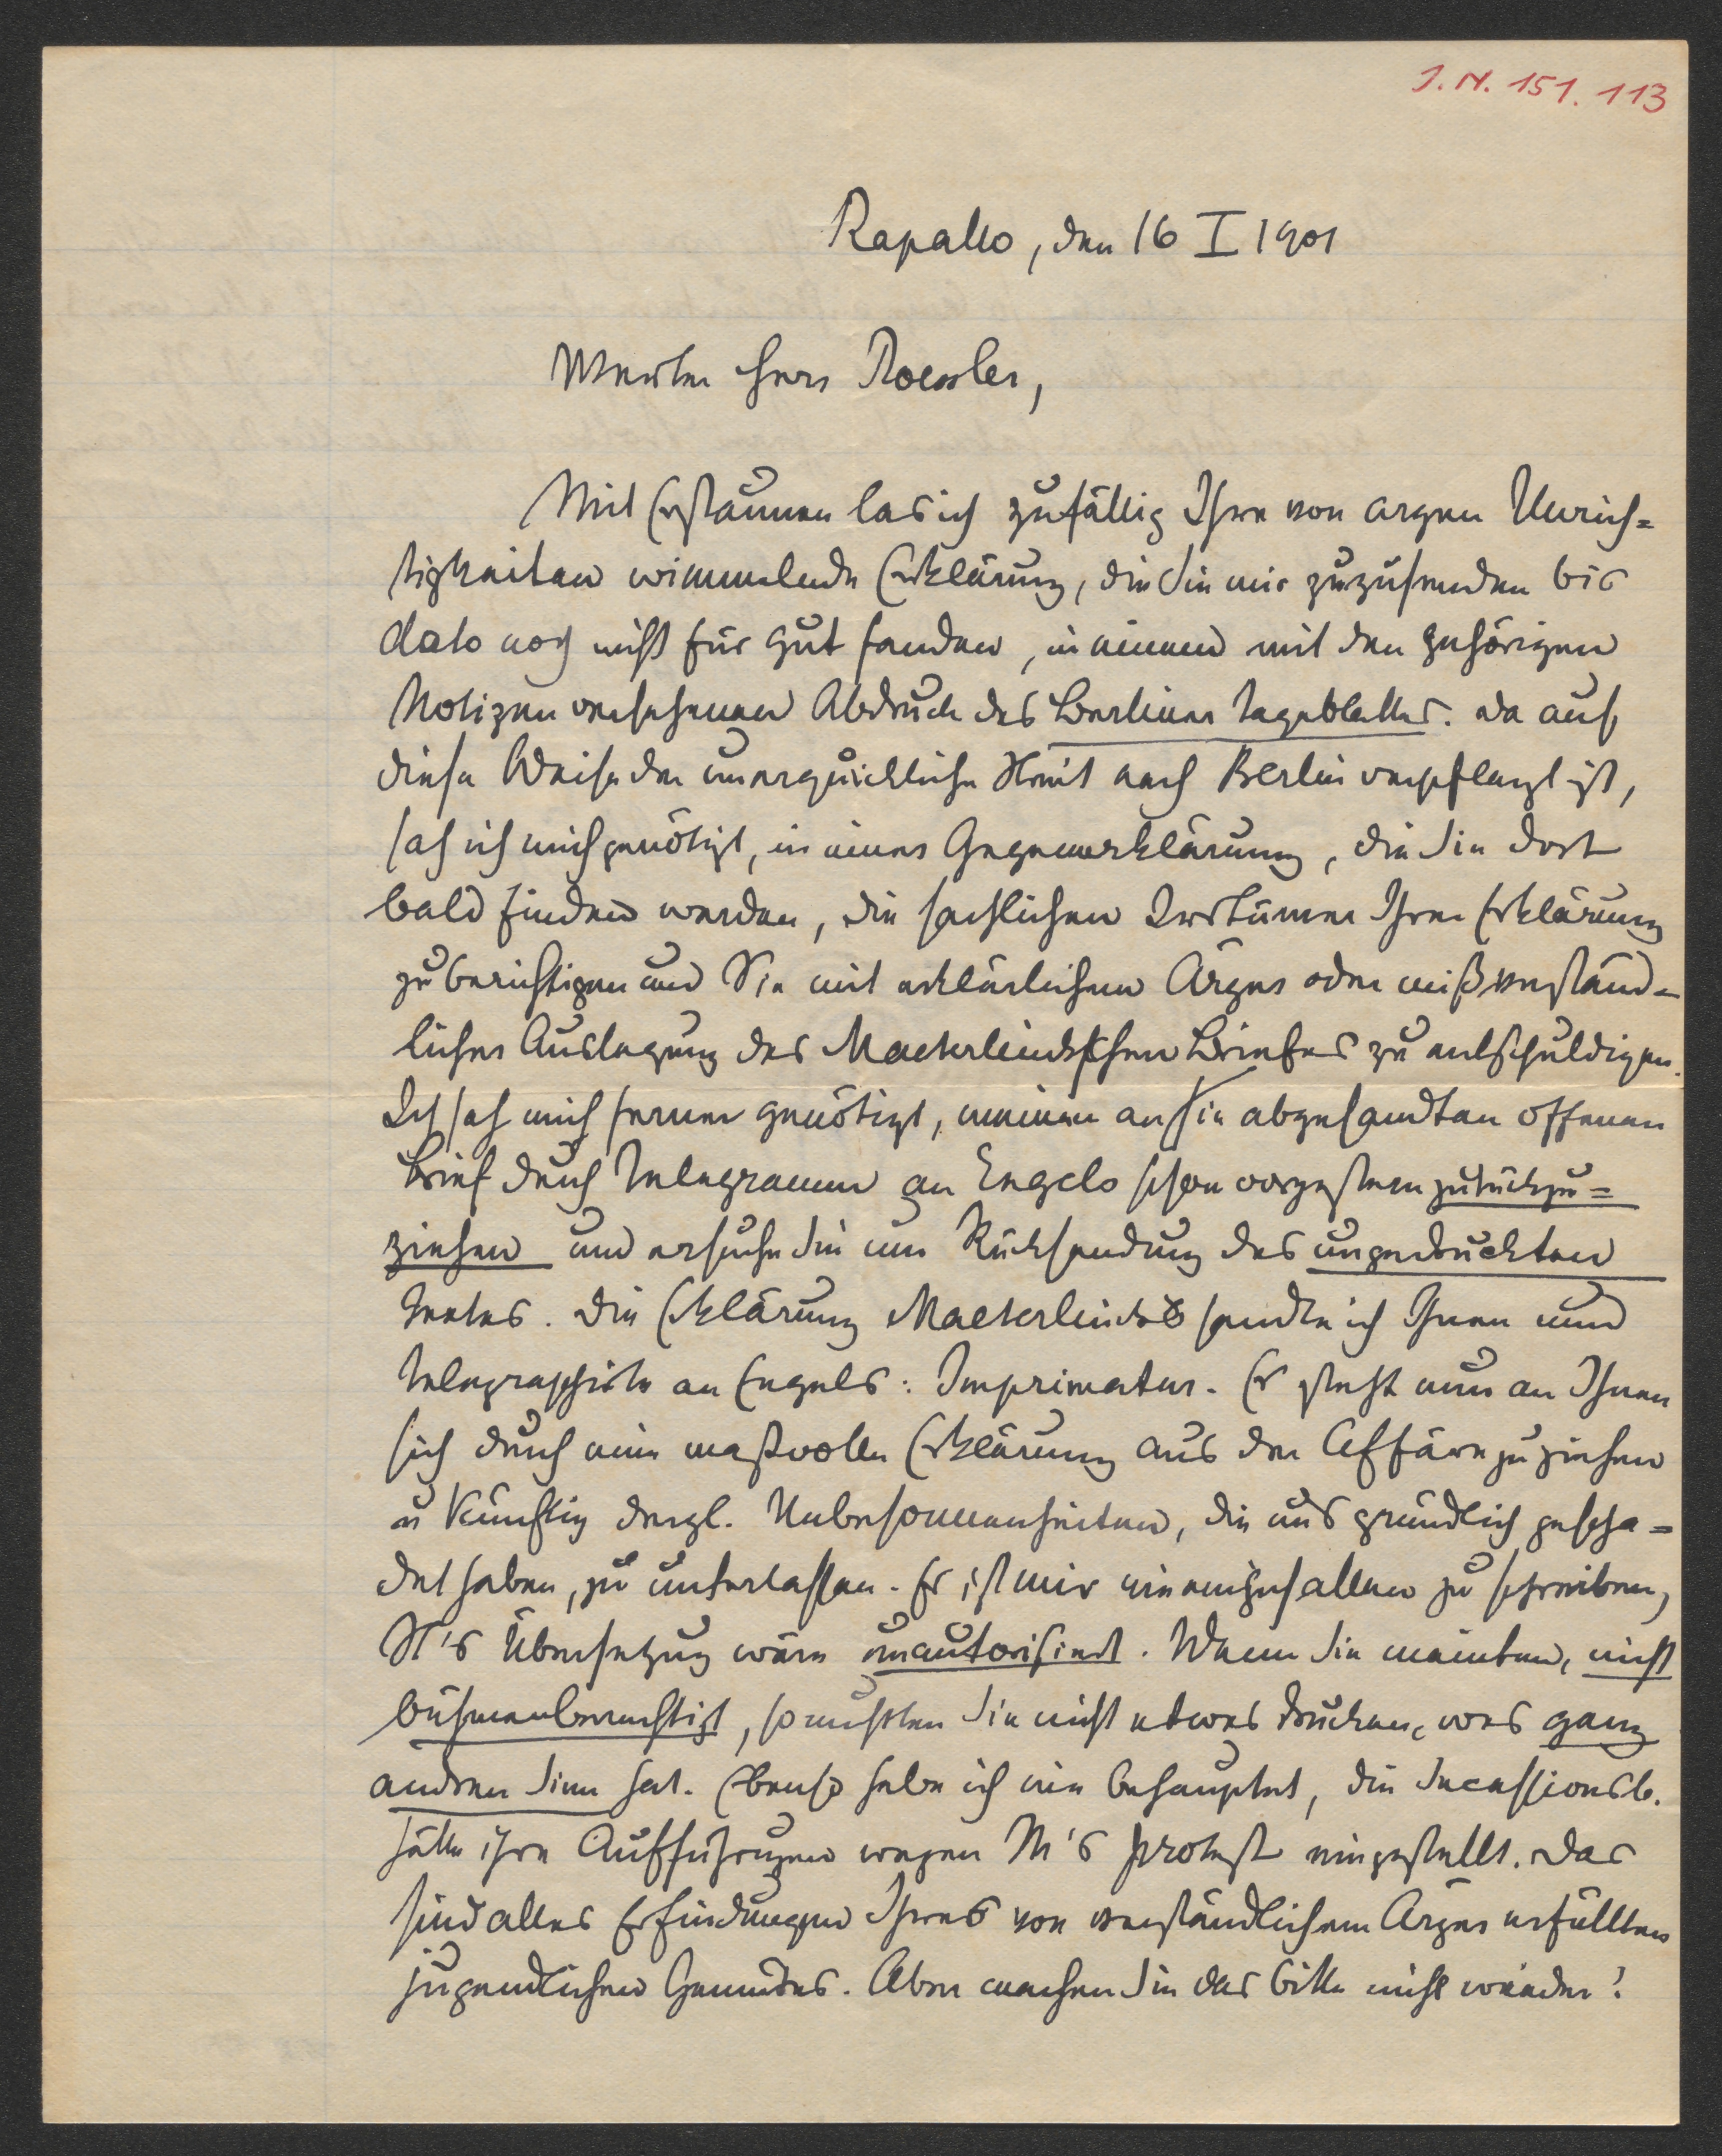 J. N. 151. 113
Rapallo, den 16 I 1901
Werter Herr Roessler,
Mit Erstaunen las ich zufällig Ihre von argen Unrich=
tigkeiten wimmelnde Erklärung, die Sie mir zuzusenden bis
dato noch nicht für gut fanden, in einem mit den gehörigen
Notizen versehenen Abdruck des Berliner Tageblattes. Da auf
diese Weise der unerquickliche Streit nach Berlin verpflanzt ist,
sah ich mich genötigt, in einer Gegenerklärung, die Sie dort
bald finden werden, die sachlichen Irrtümer Ihrer Erklärung
zu berichtigen und Sie mit erklärlichem Ärger oder mißverständ=
licher Auslegung des Maeterlinckschen Briefes zu entschuldigen.
Ich sah mich ferner genötigt, meinen an Sie abgesandten offenen
Brief durch Telegramm an Engels schon vorgestern zurückzu=
ziehen und ersuche Sie um Rücksendung des ungedruckten
Textes. Die Erklärung Maeterlincks sandte ich Ihnen und
telegraphirte an Engels: Imprimatur. Es steht nun an Ihnen
sich durch eine maßvolle Erklärung aus der Affäre zu ziehen
u künftig dergl. Unbesonnenheiten, die uns gründlich gescha=
det haben, zu unterlassen. Es ist mir nie eingefallen zu schreiben,
St's Übersetzung wäre unautorisiert. Wenn Sie meinten, nicht
bühnenberechtigt, so mußten Sie nicht etwas drucken, was ganz
andren Sinn hat. Ebenso habe ich nie behauptet, die Secessionsb.
hätte ihre Aufführungen wegen M's Protest eingestellt. Das
sind alles Erfindungen Ihres von verständlichem Ärger erfüllten
jugendlichen Gemütes. Aber machen Sie das bitte nicht wieder!